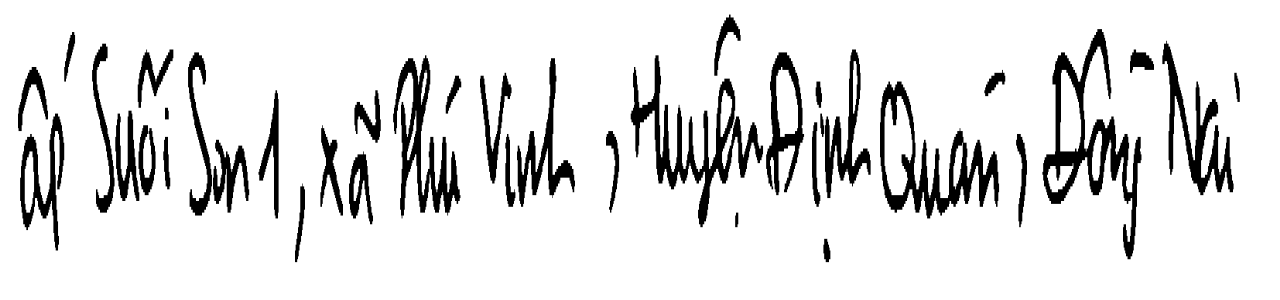 ấp Suối Son 1, xã Phú Vinh, Huyện Định Quán, Đồng Nai